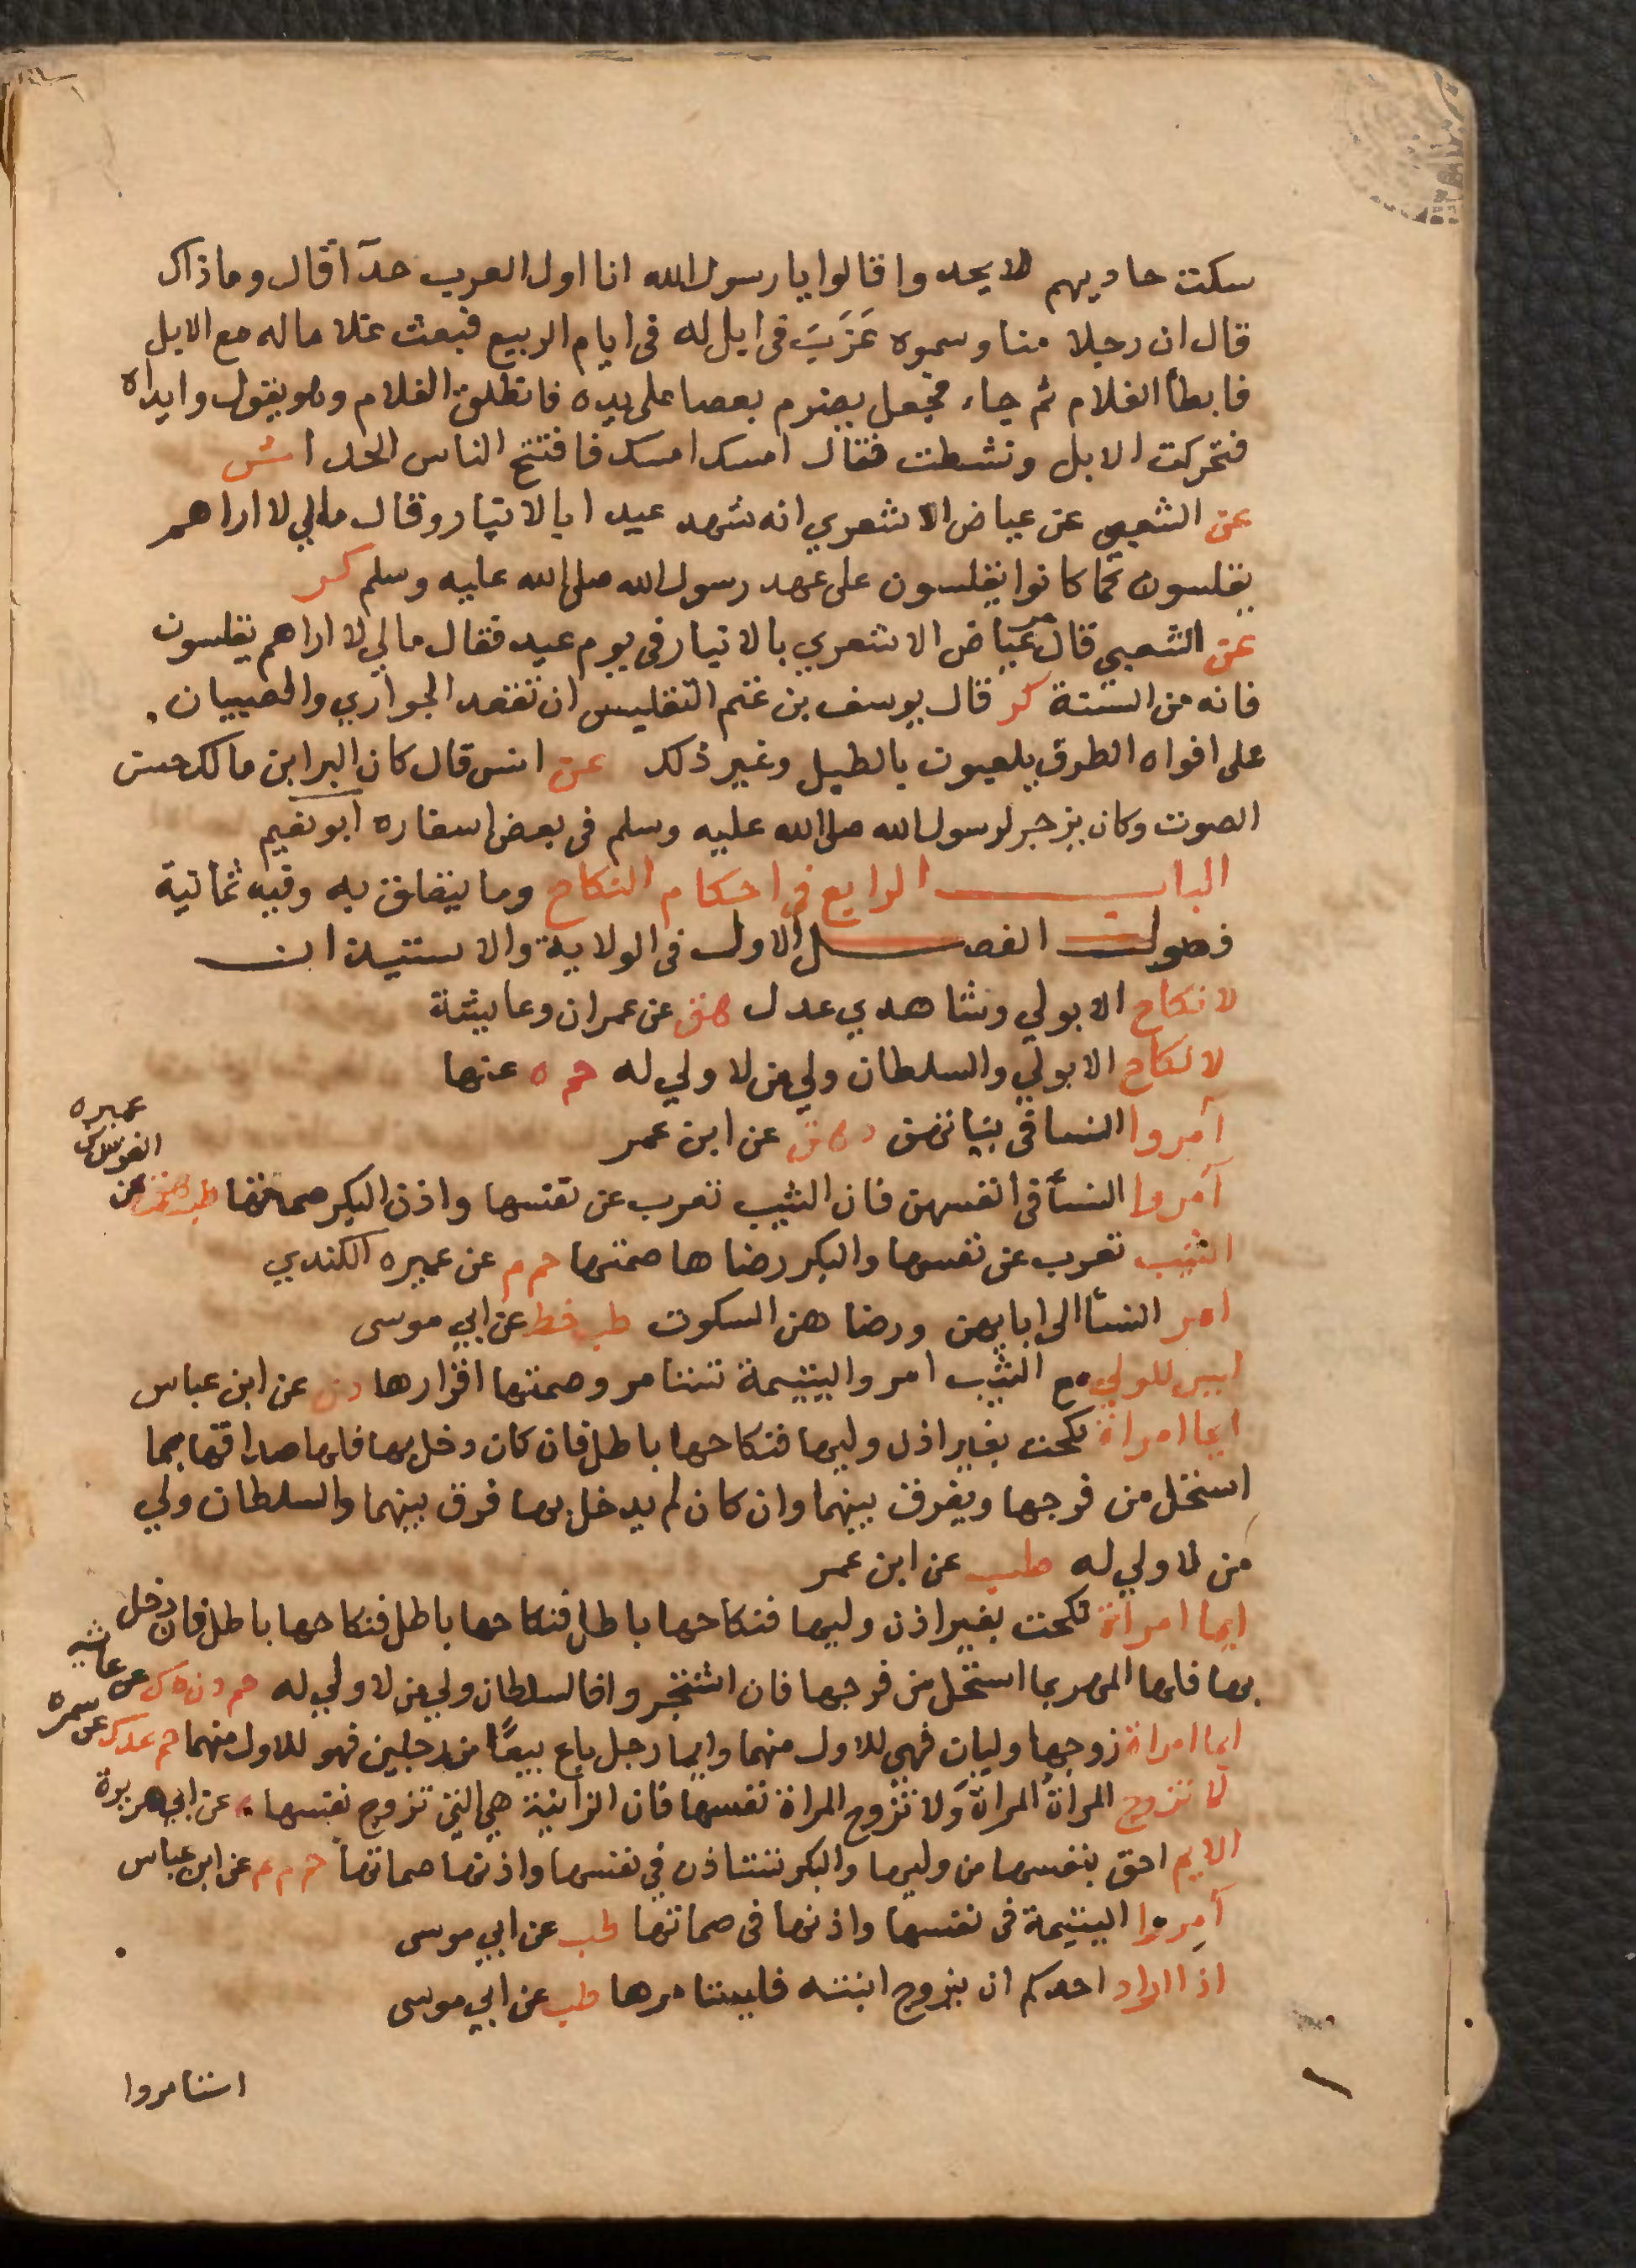 سكت حاديهم لا يحدوا قالوا يا رسول الله انا اول العرب حدآا قال وما ذاك
قال ان رجلا منا وسموه عَزَبَ في ابل له في ايام الربيع فبعث غلاما له مع الابل
فابطأ الغلام ثم جاء فجعل يضربه بعصا على يده فانطلق الغلام وهو يقول وايداه
فتحركت الابل ونشطت فقال امسك امسك فافتتح الناس الحدا ش
عن الشعبي عن عياض الاشعري انه شهد عيدا بالانبار وقال مالي لا اراهم
يقلسون كما كانوا يقلسون على عهد رسول الله صلى الله عليه وسلم كر
عن الشعبي قال مر عياض الاشعري بالانبار في يوم عيد فقال مالي لا اراهم يقلسون
فانه من السنة كر قال يوسف بن عنم التقليس ان تقعد الجواري والصبيان
على افواه الطرق يلعبون بالطبل وغير ذلك عن انس قال كان البرا بن مالك حسن
الصوت وكان يرجز لرسول الله صلى الله عليه وسلم في بعض اسفاره ابو نعيم
الباب الرابع في احكام النكاح وما يتعلق به وفيه ثمانية
فصول الفصل الاول في الولاية والاستيذان
لا نكاح الا بولي وشاهدي عدل هق عن عمران وعايشة
لا نكاح الا بولي والسلطان ولي من لا ولي له حم ه عنها
آمروا النسا في بناتهن د هق عن ابن عمر
آمروا النسأ في انفسهن فان الثيب تعرب عن نفسها واذن البكر صماتها طب هق عن
عميره
الثيب تعرب عن نفسها والبكر رضاها صمتها حم م عن عميره الكندي
امر النسأ الى ابايهن ورضاهن السكوت طب خط عن ابي موسى
ليس للولي مع الثيب امر واليتيمة تستامر وصمتها اقرارها د ن عن ابن عباس
ايما امراة نكحت بغير اذن وليها فنكاحها باطل فان كان دخل بها فلها صداقها بما
استحل من فرجها ويفرق بينهما وان كان لم يدخل بها فرق بينهما والسلطان ولي
من لا ولي له طب عن ابن عمر
ايما امراة نكحت بغير اذن وليها فنكاحها باطل فنكاحها باطل فنكاحها باطل فان دخل
بها فلها المهر بما استحل من فرجها فان اشتجروا فالسلطان ولي من لا ولي له حم د ت ه ك عن عايشه
ايما امراة زوجها وليان فهي للاول منهما وايما رجل باع بيعًا من رجلين فهو للاول منهما حم عد ك عن سمره
لا تزوج المرأة المراة ولا تزوج المراة نفسها فان الزانية هي التي تزوج نفسها ه عن ابي هريرة
الايم احق بنفسها من وليها والبكر تستاذن في نفسها واذنها صماتها حم م عم عن ابن عباس
آمروا اليتيمة في نفسها واذنها في صماتها طب عن ابي موسى
اذا اراد احدكم ان يزوج ابنته فليستامرها طب عن ابي موسى
استامروا